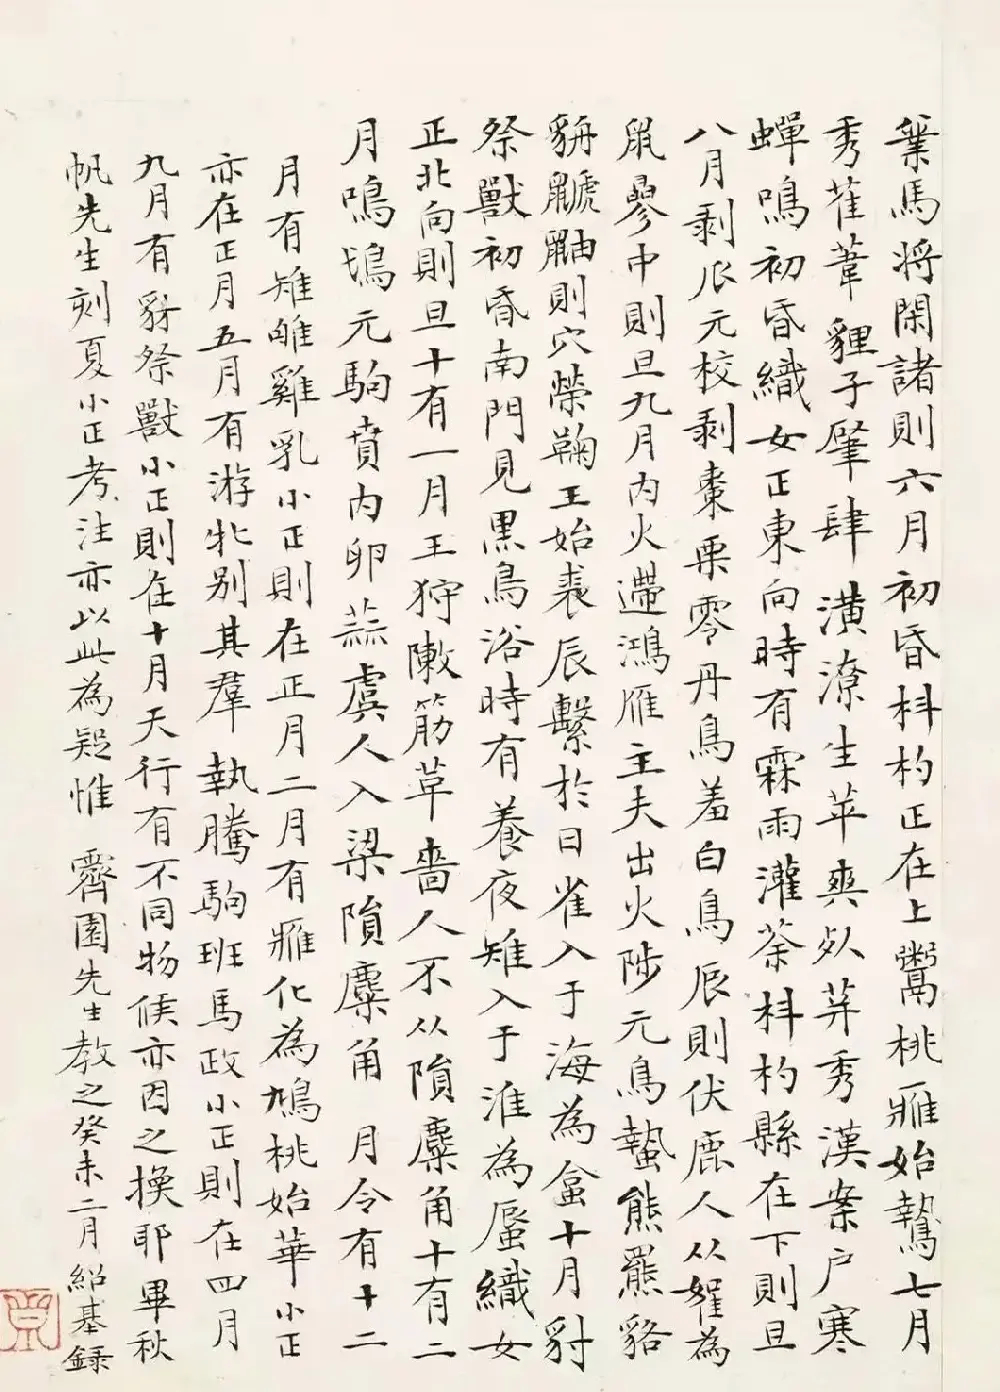 葉馬將閑諸則六月初昏枓杓正在上鬻桃雁始鷙七月
秀雈葦貍子肇肆潢潦生苹爽死荓秀漢案户寒
蟬鳴初昏織女正東向時有霖雨灌荼枓杓縣在下則旦
八月剥瓜元校剥棗栗零丹鳥羞白鳥辰則伏鹿人从䧹為
鼠曑中則旦九月内火遰鴻雁主夫出火陟元鳥蟄熊羆貉
貈鼶鼬則穴榮鞠王始裘辰繫於日雀入于海為盒十月豺
祭獸初昏南門見黑鳥浴時有養夜雉入于淮為蜃織女
正北向則旦十有一月王狩敶筋革嗇人不从隕麋角十有二
月鳴鴆元駒蕡内卵蒜虞人入梁隕麋角 月令有十二
月有雉雊雞乳小正則在正月二月有雁化為鳩桃始華小正
亦在正月五月有游牝别其羣執騰駒班馬政小正則在四月
九月有豺祭獸小正則在十月天行有不同物候亦因之換耶畢秋
帆先生刻夏小正考注亦以此為疑惟 霽園先生教之癸未二月紹基録